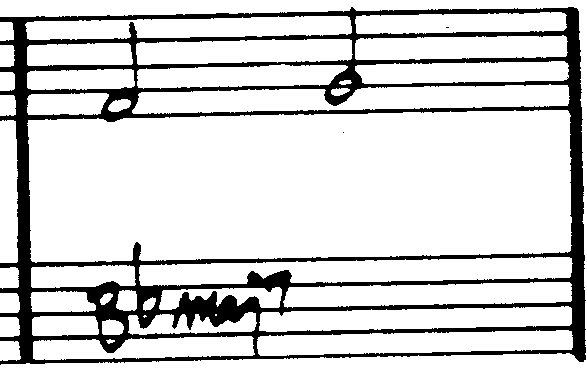 B♭maj7